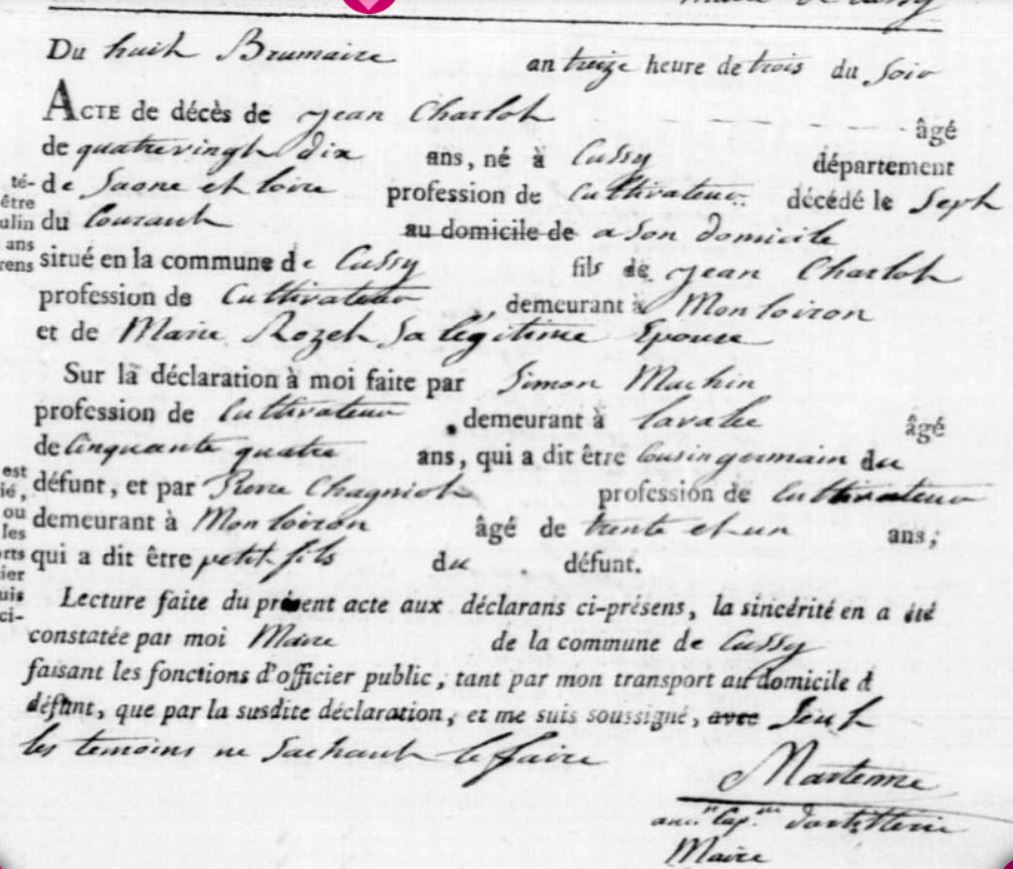 Du huit Brumaire an treize heure de trois du Soir
ACTE de décès de jean Charlot âgé
de quatrevingt dix ans, né à Cussy département
de Saone et loire profession de Cultivateur décédé le Sept
du Courant au domicile de a son domicile
situé en la commune de Cussy fils de jean Charlot
profession de Cultivateur demeurant à Montoiron
et de Marie Rozet Sa légitime Epouse
Sur la déclaration à moi faite par Simon Machin
profession de Cultivateur demeurant à lavalee âgé
de Cinquante quatre ans, qui a dit être Cousin germain du
défunt, et par Pierre Chagniot profession de Cultivateur
demeurant à Montoiron âgé de trente et un ans;
qui a dit être petit fils du défunt.
Lecture faite du présent acte aux déclarans ci-présens, la sincérité en a été
constatée par moi Maire de la commune de Cussy
faisant les fonctions d'officier public, tant par mon transport au domicile d
défunt, que par la susdite déclaration, et me suis soussigné, avec Seul
les temoins ne Sachant le faire
Martenne
anc.n Cap.ne d'artillerie
Maire
té-
être
ulin
ans
rens
est
ié,
ou
les
rts
ier
uis
ci-